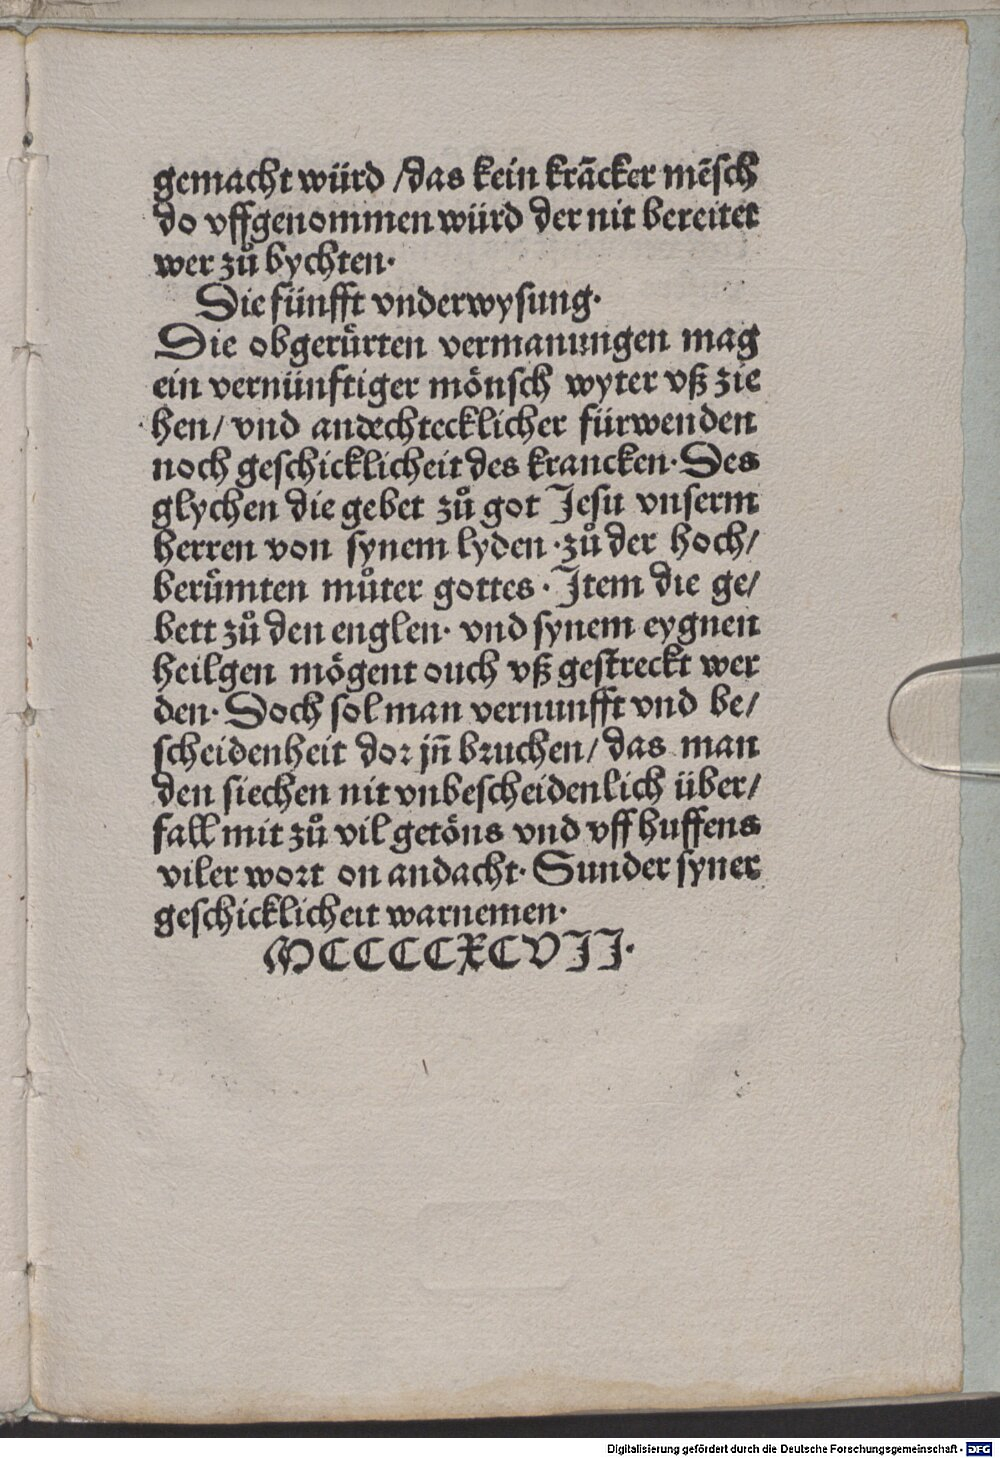 gemacht würd /das kein krācker mēsch
do vffgenommen würd der nit bereitet
wer zů bychten·
Die fünfft vnderwysung·
Die obgerürten vermanungen mag
ein vernünftiger mönsch wyter vß zie
hen/ vnd andechtecklicher fürwenden
noch geschicklicheit des krancken· Des
glychen die gebet zů got Jesu vnserm
herren von synem lyden ·zů der hoch/
berümten můter gottes · Jtem die ge/
bett zů den englen· vnd synem eygnen
heilgen mögent ouch vß gestreckt wer
den· Doch sol man vernunfft vnd be/
scheidenheit dor jn̄ bruchen/ das man
den siechen nit vnbescheidenlich über/
fall mit zů vil getöns vnd vff huffens
viler wort on andacht· Sunder syner
geschicklicheit warnemen·
MCCCCXCVIJ·
Digitalisierung gefördert durch die Deutsche Forschungsgemeinschaft - DFG